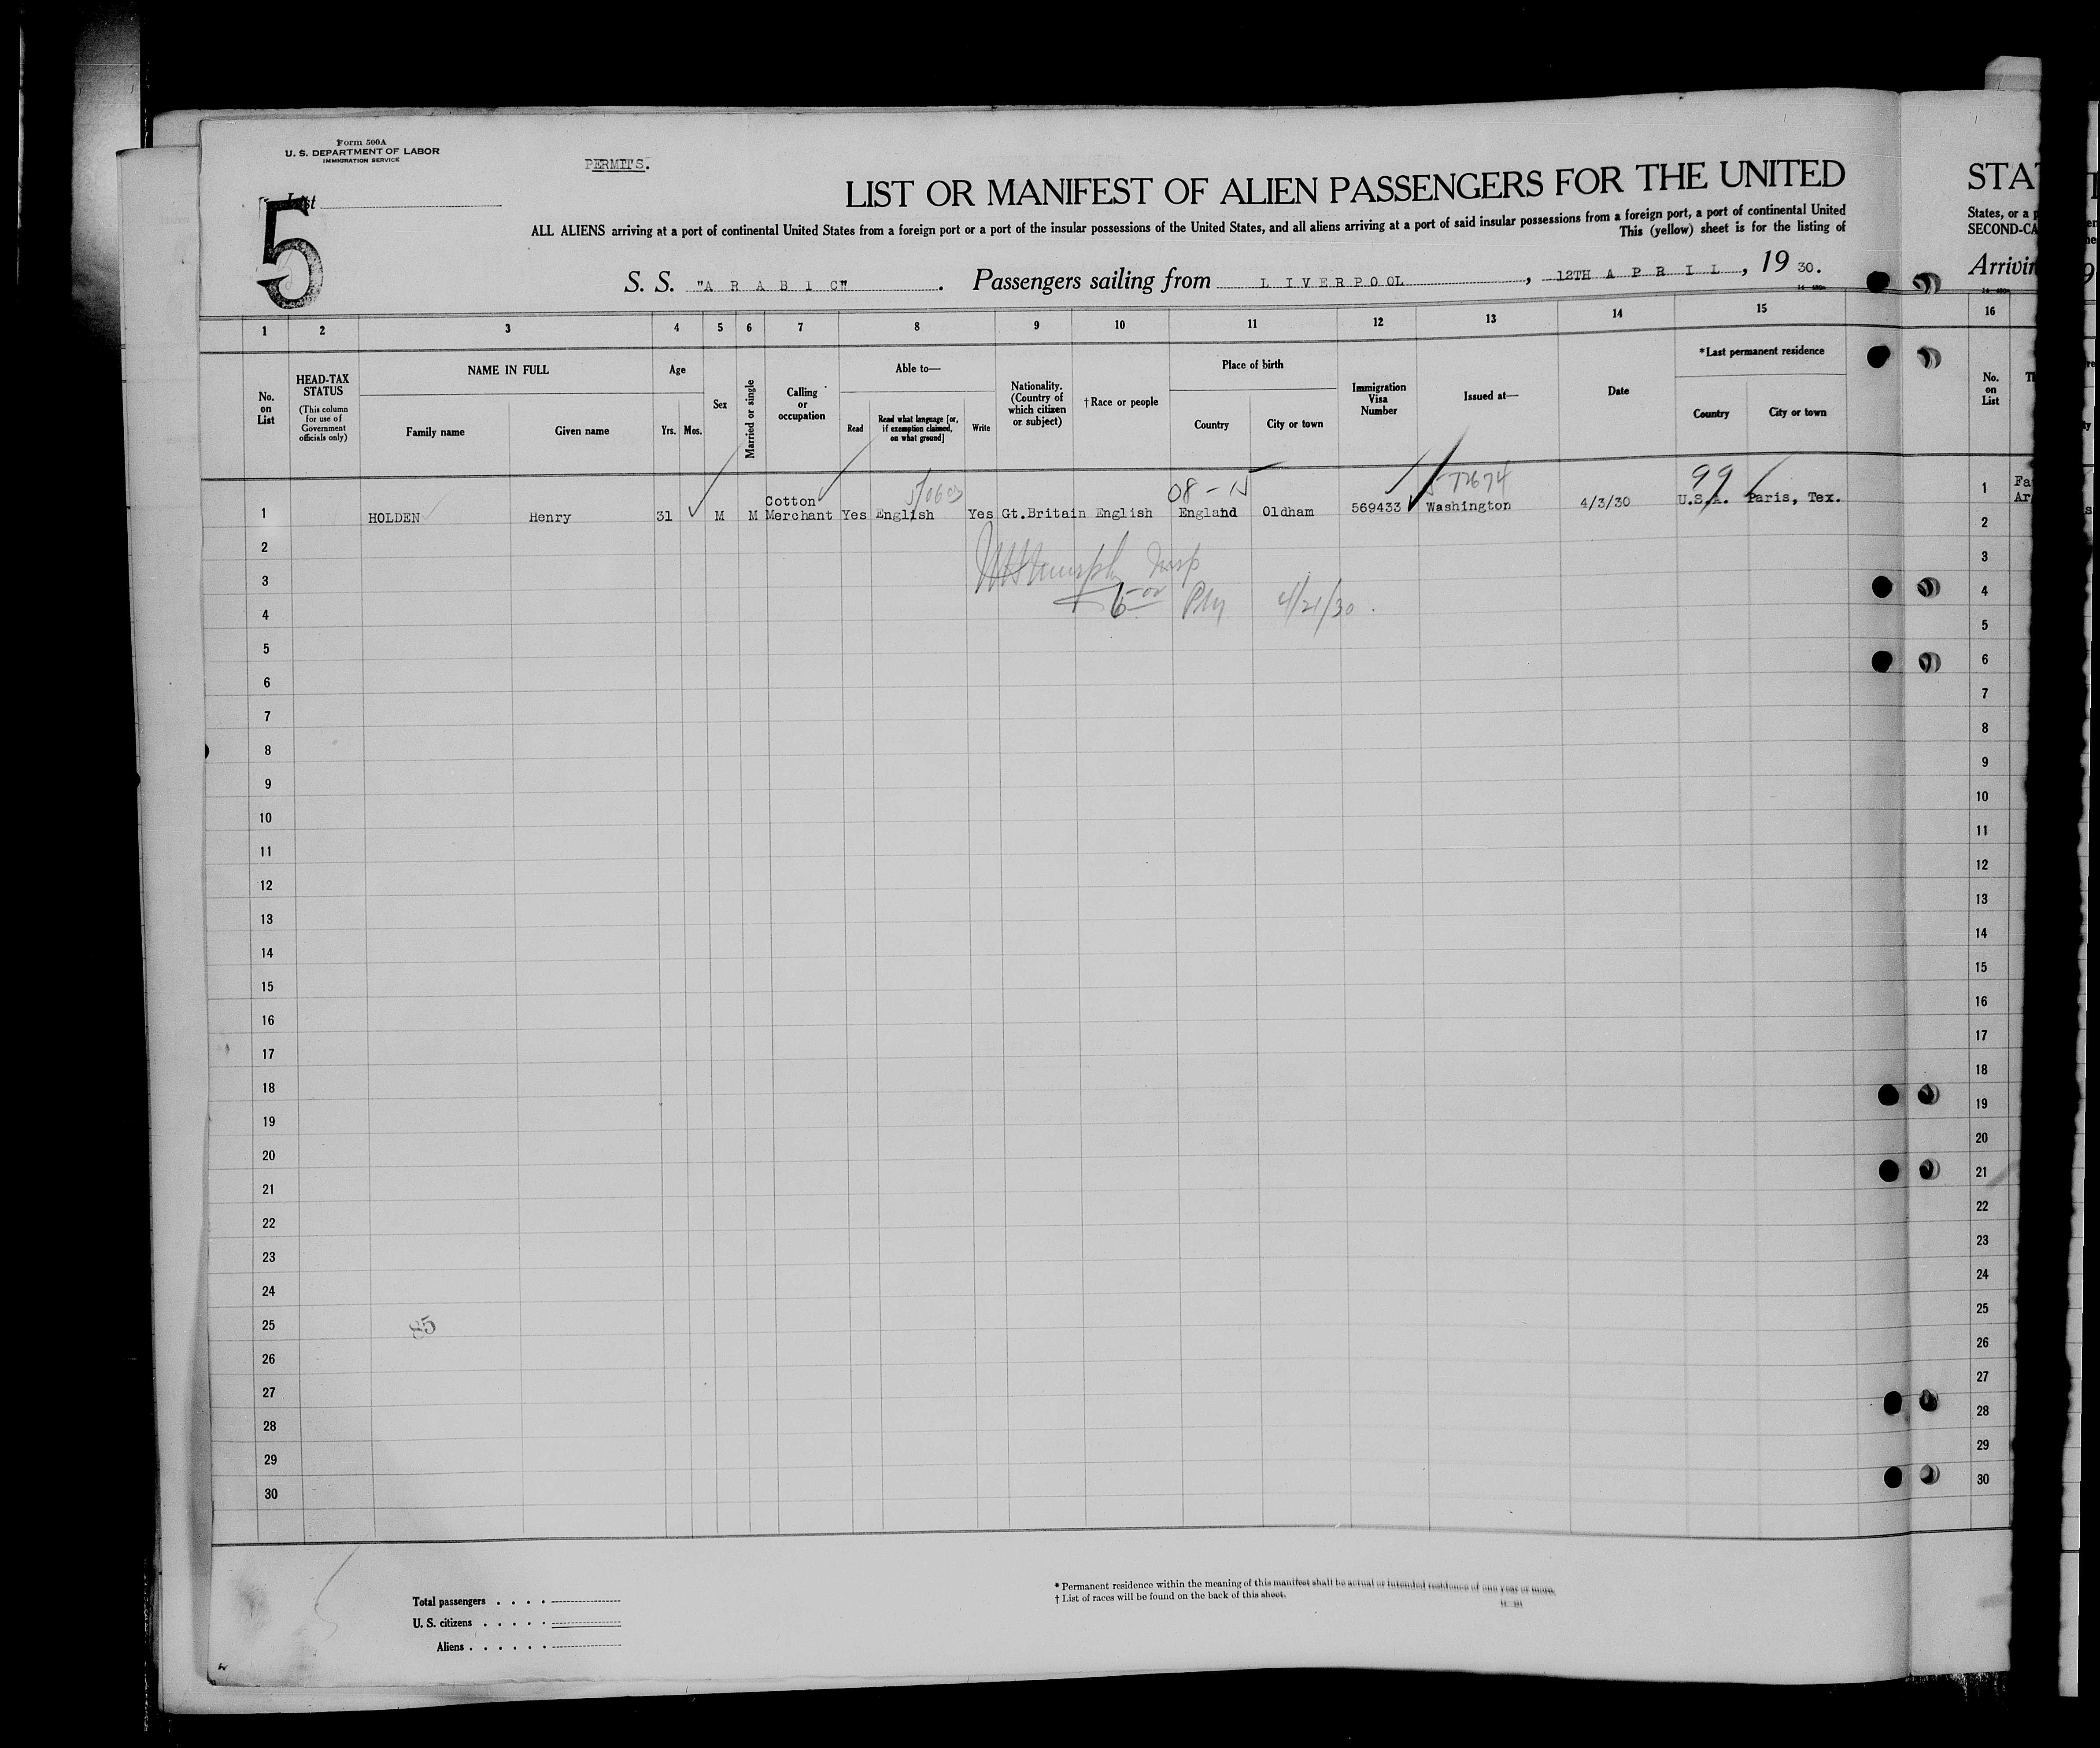 Form 500A
U. S. DEPARTMENT OF LABOR
IMMIGRATION SERVICE
PERMITS.
List
5
LIST OR MANIFEST OF ALIEN PASSENGERS FOR THE UNITED
ALL ALIENS arriving at a port of continental United States from a foreign port or a port of the insular possessions of the United States, and all aliens arriving at a port of said insular possessions from a foreign port, a port of continental United
This (yellow) sheet is for the listing of
S. S. "A R A B I C". Passengers sailing from L I V E R P O OL, 12TH A P R I L, 19 30.
STA
States, or a p
SECOND-CA
Arrivin
1 2 3 4 5 6 7 8 9 10 11 12 13 14 15
16
No. on List
HEAD-TAX STATUS
(This column for use of Government officials only)
NAME IN FULL
Family name
Given name
Age
Yrs. Mos.
Sex
Married or single
Calling or occupation
Able to—
Read
Read what language [or, if exemption claimed, on what ground]
Write
Nationality. (Country of which citizen or subject)
† Race or people
Place of birth
Country
City or town
Immigration Visa Number
Issued at—
Date
*Last permanent residence
Country
City or town
No. on List
08 - 15
72674
99
1 HOLDEN Henry 31 M M Cotton Merchant Yes English Yes Gt.Britain English England Oldham 569433 Washington 4/3/30 U.S.A. Paris, Tex.
1 Fa
Ar
2
3
Insp
4
6 00 PM 4/21/30.
5
6
7
8
9
10
11
12
13
14
15
16
17
18
19
20
21
22
23
24
25
85
26
27
28
29
30
2
3
4
5
6
7
8
9
10
11
12
13
14
15
16
17
18
19
20
21
22
23
24
25
26
27
28
29
30
Total passengers . . . .
U. S. citizens . . . . .
Aliens . . . . . .
* Permanent residence within the meaning of this manifest shall be actual or intended residence of one year or more.
† List of races will be found on the back of this sheet.